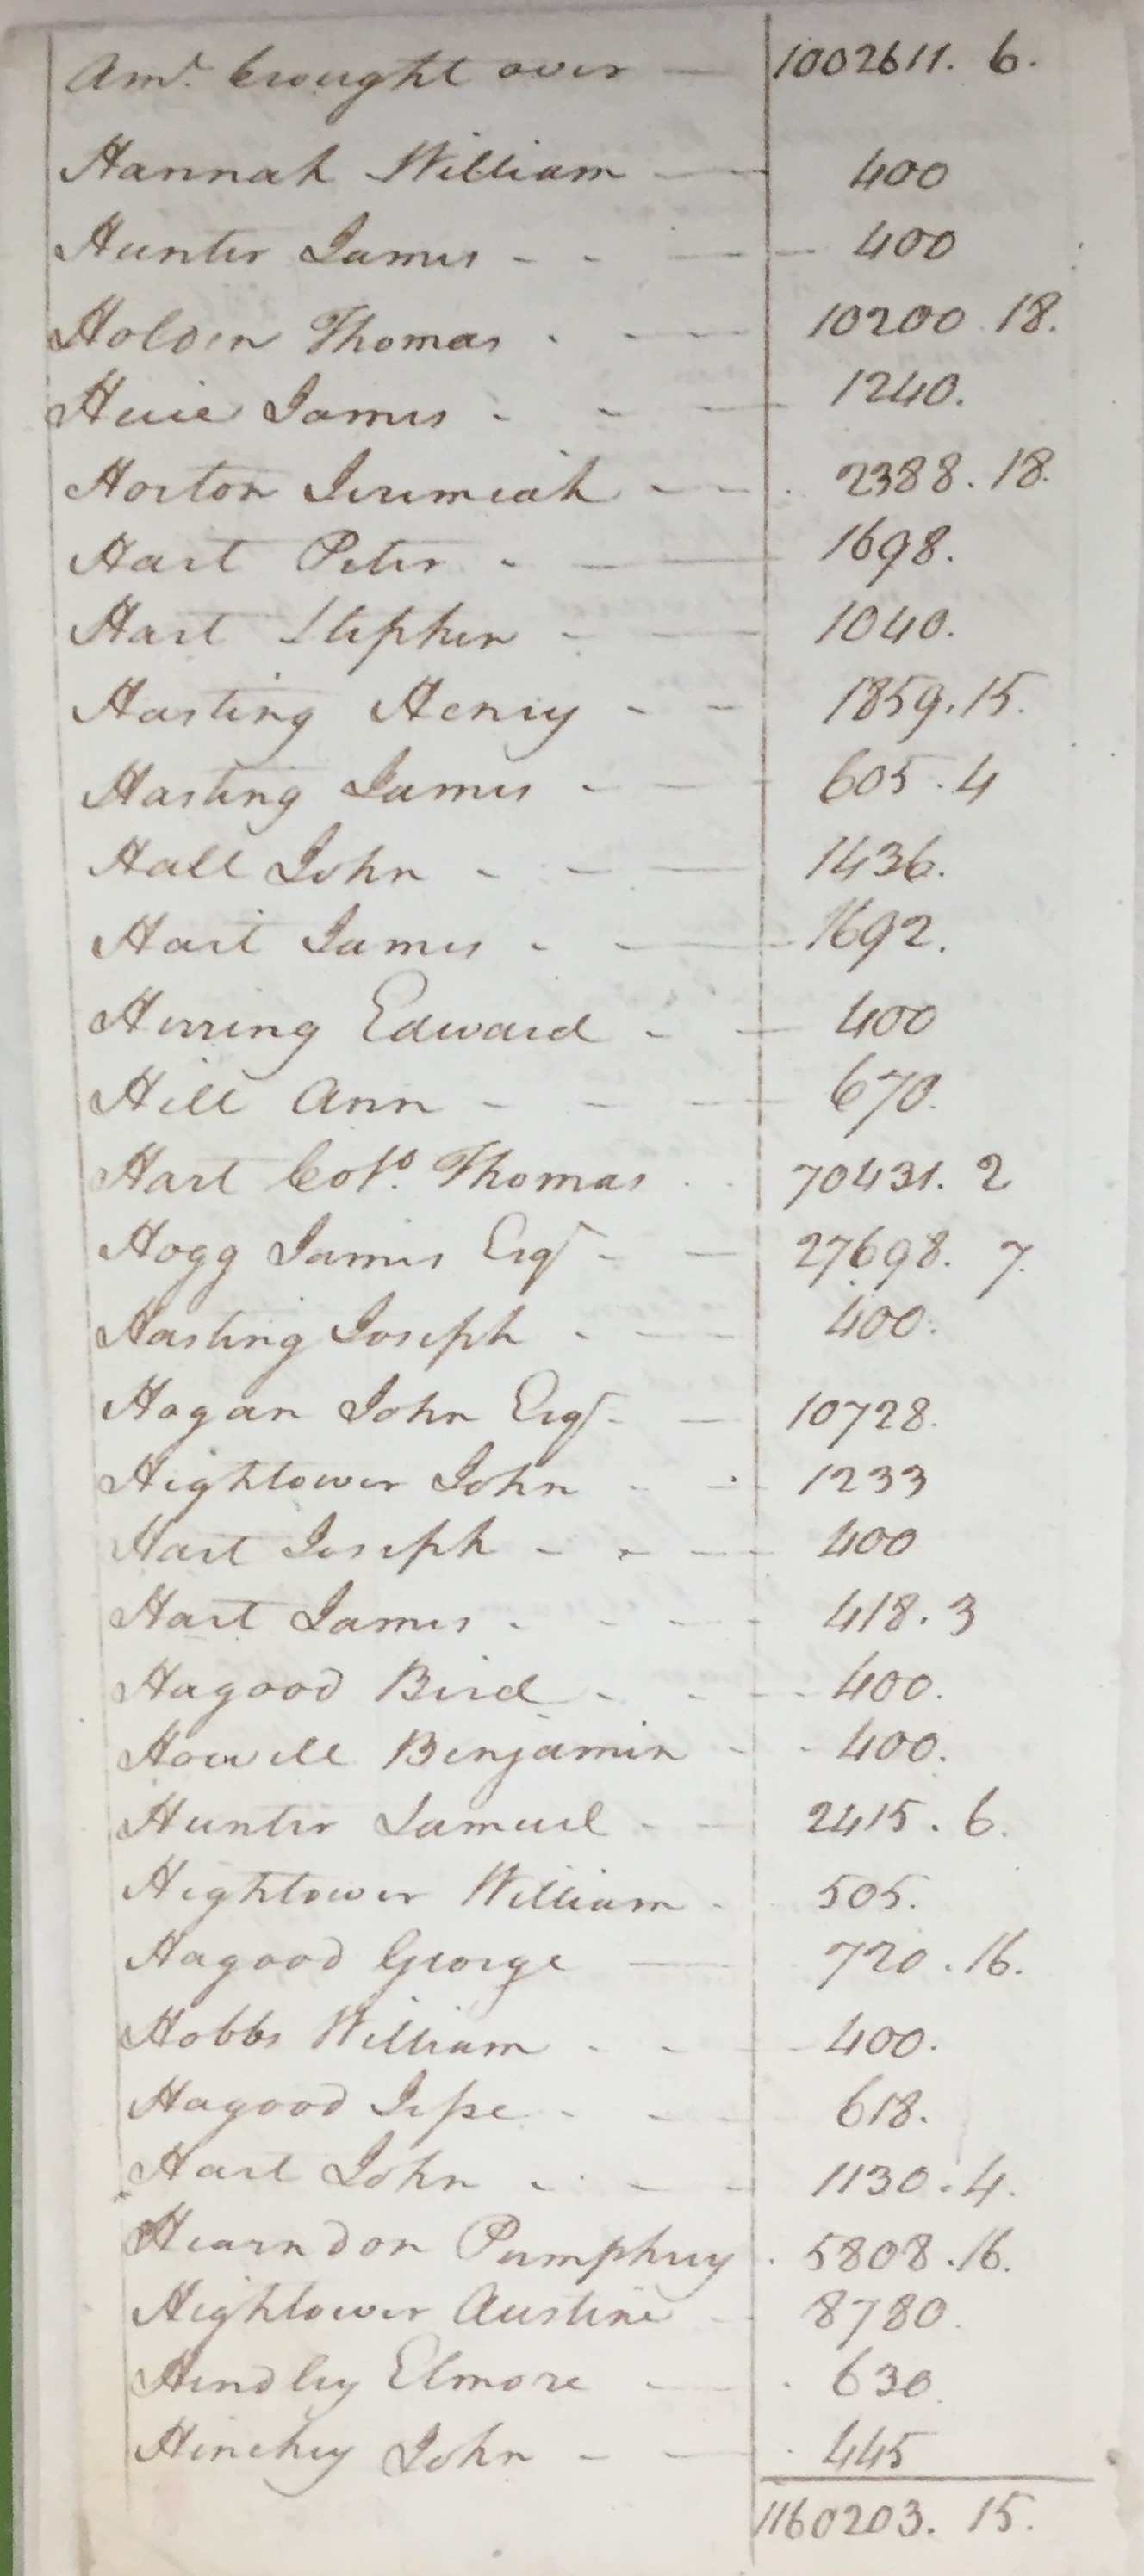 Amt. brought over — 1002611. 6.
Hannah William — 400
Hunter James - - — 400
Holden Thomas - — 10200. 18.
Huie James - - — 1240.
Horton Jeremiah - — 2388. 18.
Hart Peter - — 1698.
Hart Stephen - — 1040.
Hasting Henry - - 1859. 15.
Hasting James - — 605. 4
Hall John - - — 1436.
Hart James - — 1692.
Herring Edward - — 400
Hill Ann - - — 670.
Hart Colo. Thomas - - 70431. 2
Hogg James Esqr - — 27698. 7.
Hasting Joseph - — 400.
Hogan John Esqr - — 10728.
Hightower John - - 1233
Hart Joseph - - — 400
Hart James - - — 418. 3
Hagood Bird - - — 400.
Howell Benjamin - - 400.
Hunter Samuel - — 2415. 6.
Hightower William - 505.
Hagood George — 720. 16.
Hobbs William - - — 400.
Hagood Jesse - — 618.
Hart John - - — 1130. 4.
Hearndon Pumphrey . 5808. 16.
Hightower Austine - 8780.
Hindley Elmore — 630.
Hinchey John - — 445
1160203. 15.